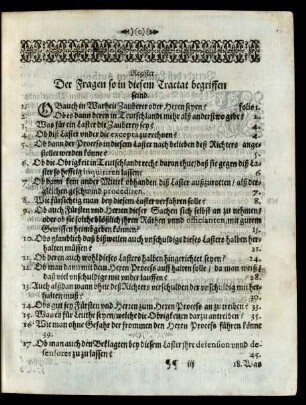 Register
Der Fragen so in diesem Tractat begriffen
seind.
1. OB auch in Warheit Zauberer oder Hexen seyen? folio 1.
2. Ob es dann deren in Teutschlandt mehr als anderstwo gebe? 2.
3. Was für ein Laster die Zauberey sey? 3.
4. Ob diß Laster under die excepta zurechnen? 4.
5. Ob dann der Process in diesem Laster nach belieben deß Richters angestellet
werden könne? 4.
6. Ob die Obrigkeit in Teutschlandt recht daran thue, daß sie gegen diß Laster
so hefftig inquiriren lassen?
7. Ob dann kein ander Mittel vorhanden diß Laster außzurotten, als dergleichen
gefängnuß procediren.
8. Wie fürsichtig man bey diesem Laster verfahren solle?
9. Ob auch Fürsten und Herren dieser Sachen sich selbst an zu nehmen?
oder ob sie solche bloßlich ihren Räthen und officianten, mit gutem
Gewissen heimbgeben können?
10. Obs glaublich daß bißweilen auch unschuldige dieses Lasters halben herhalten
müssen?
11. Ob deren auch wohl dieses Lasters halben hingerichtet seyen?
12. Ob man dann mit dem Hexen Process auff halten solle, da man weiß
daß viel unschuldige mit underlauffen?
13. Auch alßdann wann ohne deß Richters verschulden der unschuldig mit herhalten
muß?
14. Obs gut sey Fürsten und Herren zum Hexen Process an zu treiben?
15. Was es für Leuthe seyen, welche die Obrigkeiten darzu antreiben?
16. Wie man ohne Gefahr der frommen den Hexen Process führen könne
39.
17. Ob man auch den Beklagten bey diesem Laster ihre defension und defensores
zu zulassen?
45.
iij
18. Was